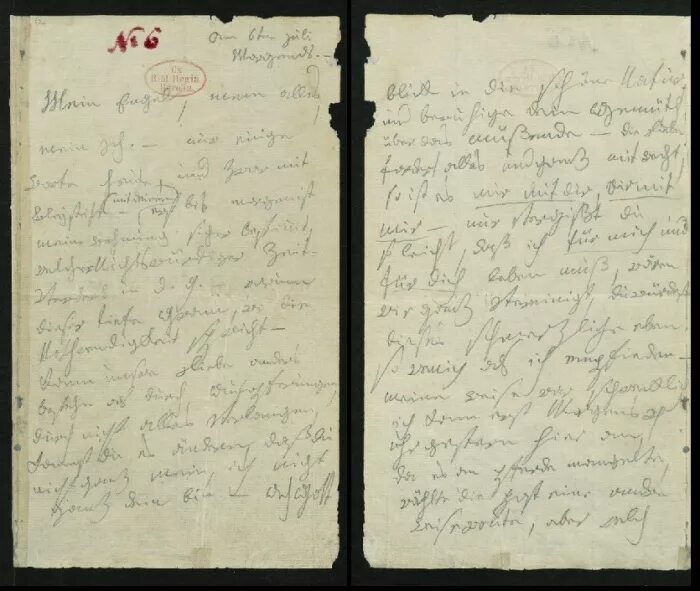 No 6
am 6ten Juli
Morgends. –
Ex
Bibl. Regia
Berolin.
Mein Engel, mein alles,
mein Ich. – nur einige
Worte heute, und zwar mit
Bleystift – (mit deinem) erst bis morgen ist
meine Wohnung sicher bestimmt,
welcher Nichtswürdiger Zeit-
verderb in d. g. – warum
dieser tiefe Gram, wo die
Nothwendigkeit spricht –
Kann unsre Liebe anders
bestehn als durch Aufopferungen,
durch nicht alles verlangen,
kannst du es ändern, daß du
nicht ganz mein, ich nicht
ganz dein bin – Ach Gott
blick in die schöne Natur
und beruhige dein Gemüth
über das müßende – die Liebe
fordert alles und ganz mit recht,
so ist es mir mit dir, dir mit
mir – nur vergißt du
so leicht, daß ich für mich und
für dich leben muß, wären
wir ganz vereinigt, du würdest
dieses schmerzliche eben
so wenig als ich empfinden –
meine Reise war schrecklich
ich kam erst Morgens 4
uhr gestern hier an,
da es an Pferde mangelte,
wählte die Post eine andre
Reiseroute, aber welch